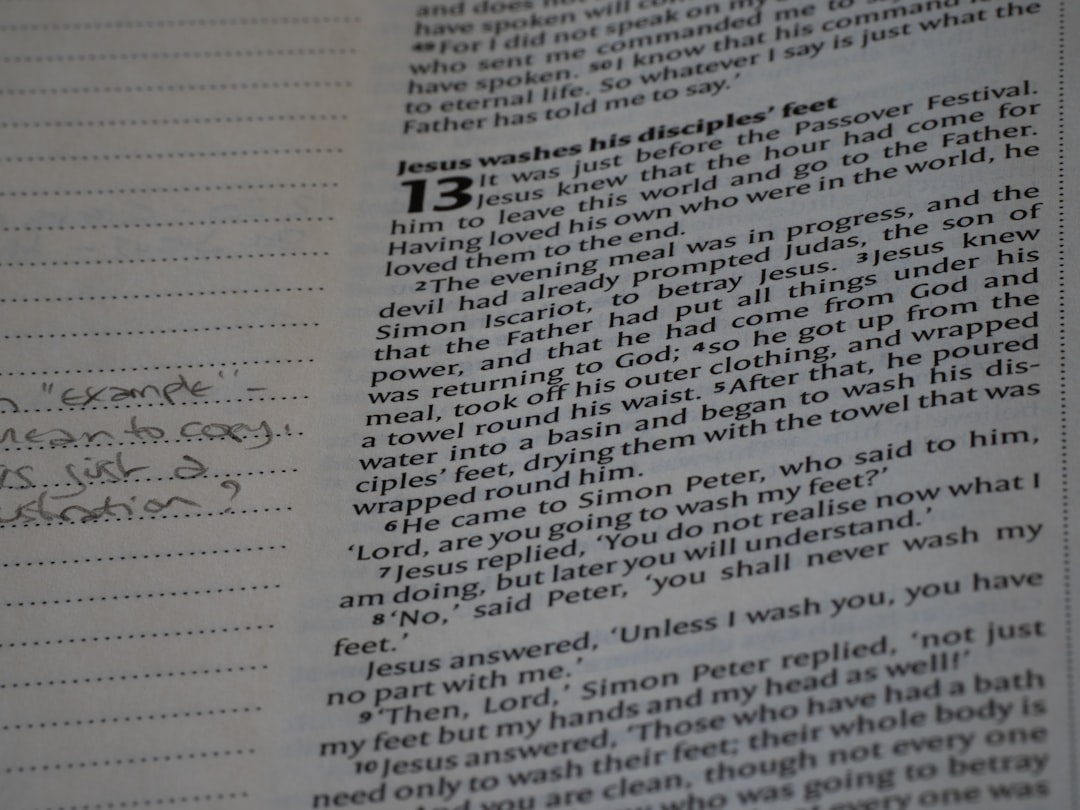 "Example" –
mean to copy.
is just a
ustration?
and does not
have spoken will
49 For I did not speak on my
who sent me commanded me to
have spoken. 50 I know that his command
to eternal life. So whatever I say is just what the
Father has told me to say.'
Jesus washes his disciples' feet
13 It was just before the Passover Festival.
Jesus knew that the hour had come for
him to leave this world and go to the Father.
Having loved his own who were in the world, he
loved them to the end.
2 The evening meal was in progress, and the
devil had already prompted Judas, the son of
Simon Iscariot, to betray Jesus. 3 Jesus knew
that the Father had put all things under his
power, and that he had come from God and
was returning to God; 4 so he got up from the
meal, took off his outer clothing, and wrapped
a towel round his waist. 5 After that, he poured
water into a basin and began to wash his dis-
ciples' feet, drying them with the towel that was
wrapped round him.
6 He came to Simon Peter, who said to him,
'Lord, are you going to wash my feet?'
7 Jesus replied, 'You do not realise now what I
am doing, but later you will understand.'
8 'No,' said Peter, 'you shall never wash my
feet.'
Jesus answered, 'Unless I wash you, you have
no part with me.'
9 'Then, Lord,' Simon Peter replied, 'not just
my feet but my hands and my head as well!'
10 Jesus answered, 'Those who have had a bath
need only to wash their feet; their whole body is
And you are clean, though not every one
who was going to betray
every one was